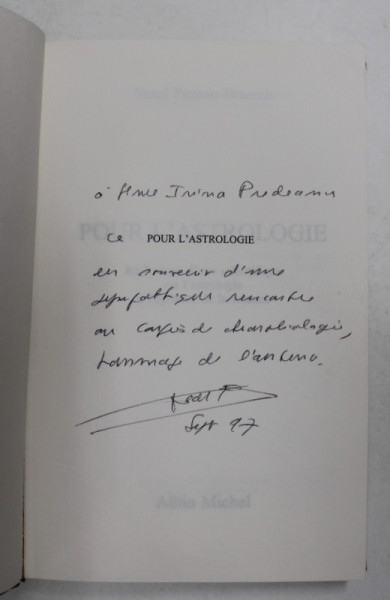 à Mme Irina Predeanu
ce POUR L'ASTROLOGIE
en souvenir d'une
sympathique rencontre
au Congrès de
hommage de l'auteur.
Sept 97
Albin Michel